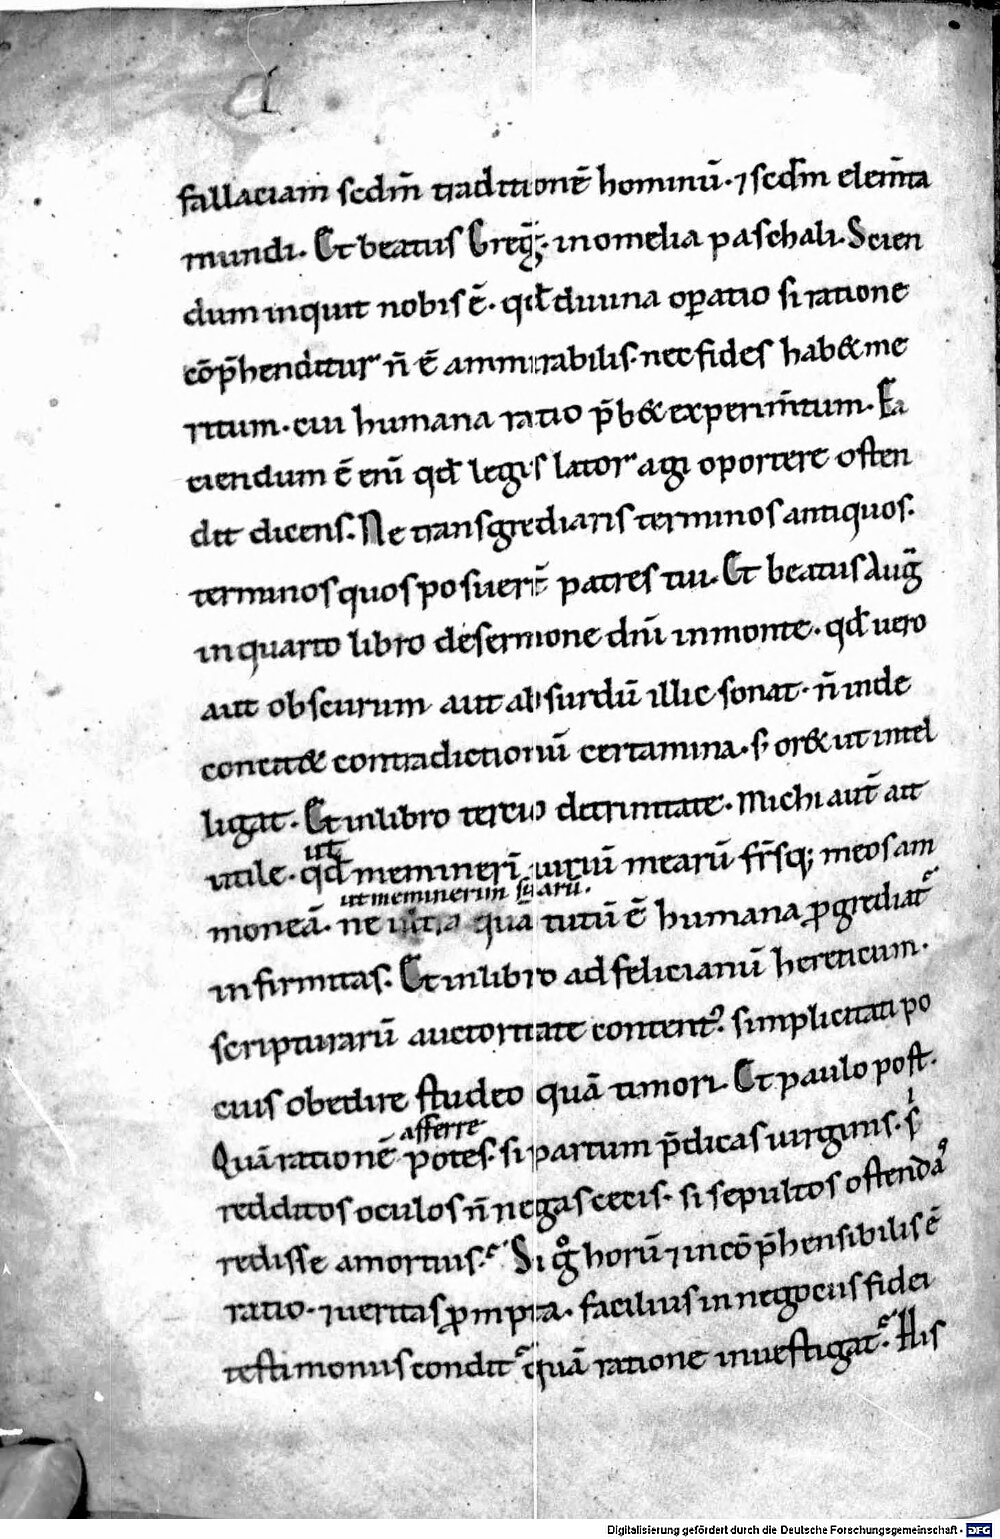 fallaciam scdm̄ traditionē hominū· ⁊ scdm̄ elem̄ta
mundi. Et beatus Greg̅; in omelia paschali. Scien
dum inquit nobis ē· qđ diuina op̱atio si ratione
cōp̄henditur n̄ ē ammirabilis· nec fides hab& me
ritum· cui humana ratio p̄b& experim̄tum. Fa
ciendum ē eni̅ qđ legis lator agi oportere osten
dit dicens. Ne transgrediaris terminos antiquos.
terminos quos posuer̅t patres tui. Et beatus Aug̅
in quarto libro de sermone dn̄i in monte· qđ uero
aut obscurum aut absurdū illic sonat· n̄ inde
concit& contradictionū certamina· s; or& ut intel
ligat. Et in libro tercio de trinitate. Michi aut̄ ait
ut
utile· qđ memineri̅ uiriū mearū fr̄sq; meos am
ut meminerim suarū.
moneā· ne ultra quā tutū ē humana ꝓgrediat᷑
infirmitas. Et in libro ad felicianū hereticum·
scripturarū auctoritate content᷒ simplicitati po
cius obedire studeo quā timori. Et paulo post.
afferre
Quā rationē potes· si partum p̄dicas uirginis· si
redditos oculos n̄ negas cecis· si sepultos ostenda᷒
redisse a mortuis. Si g̊ horū ⁊ incōp̄hensibilis ē
ratio· ⁊ ueritas ꝓmpta· facilius in negociis fidei
testimoniis condit᷑ quā ratione inuestigat᷑. His
Digitalisierung gefördert durch die Deutsche Forschungsgemeinschaft - DFG